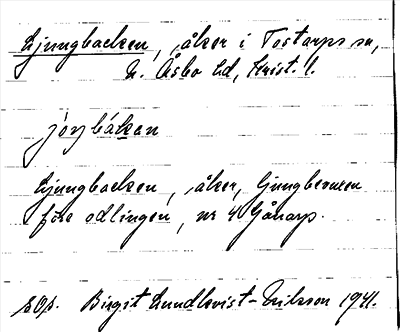 Ljungbacken, åker i Tostarps sn,
N. Åsbo hd, Krist. l.
jòŋbákan
Ljungbacken, åker, ljungbevuxen
före odlingen, nr 4 Gånarp.
Birgit Lundkvist-Nilsson 1941.